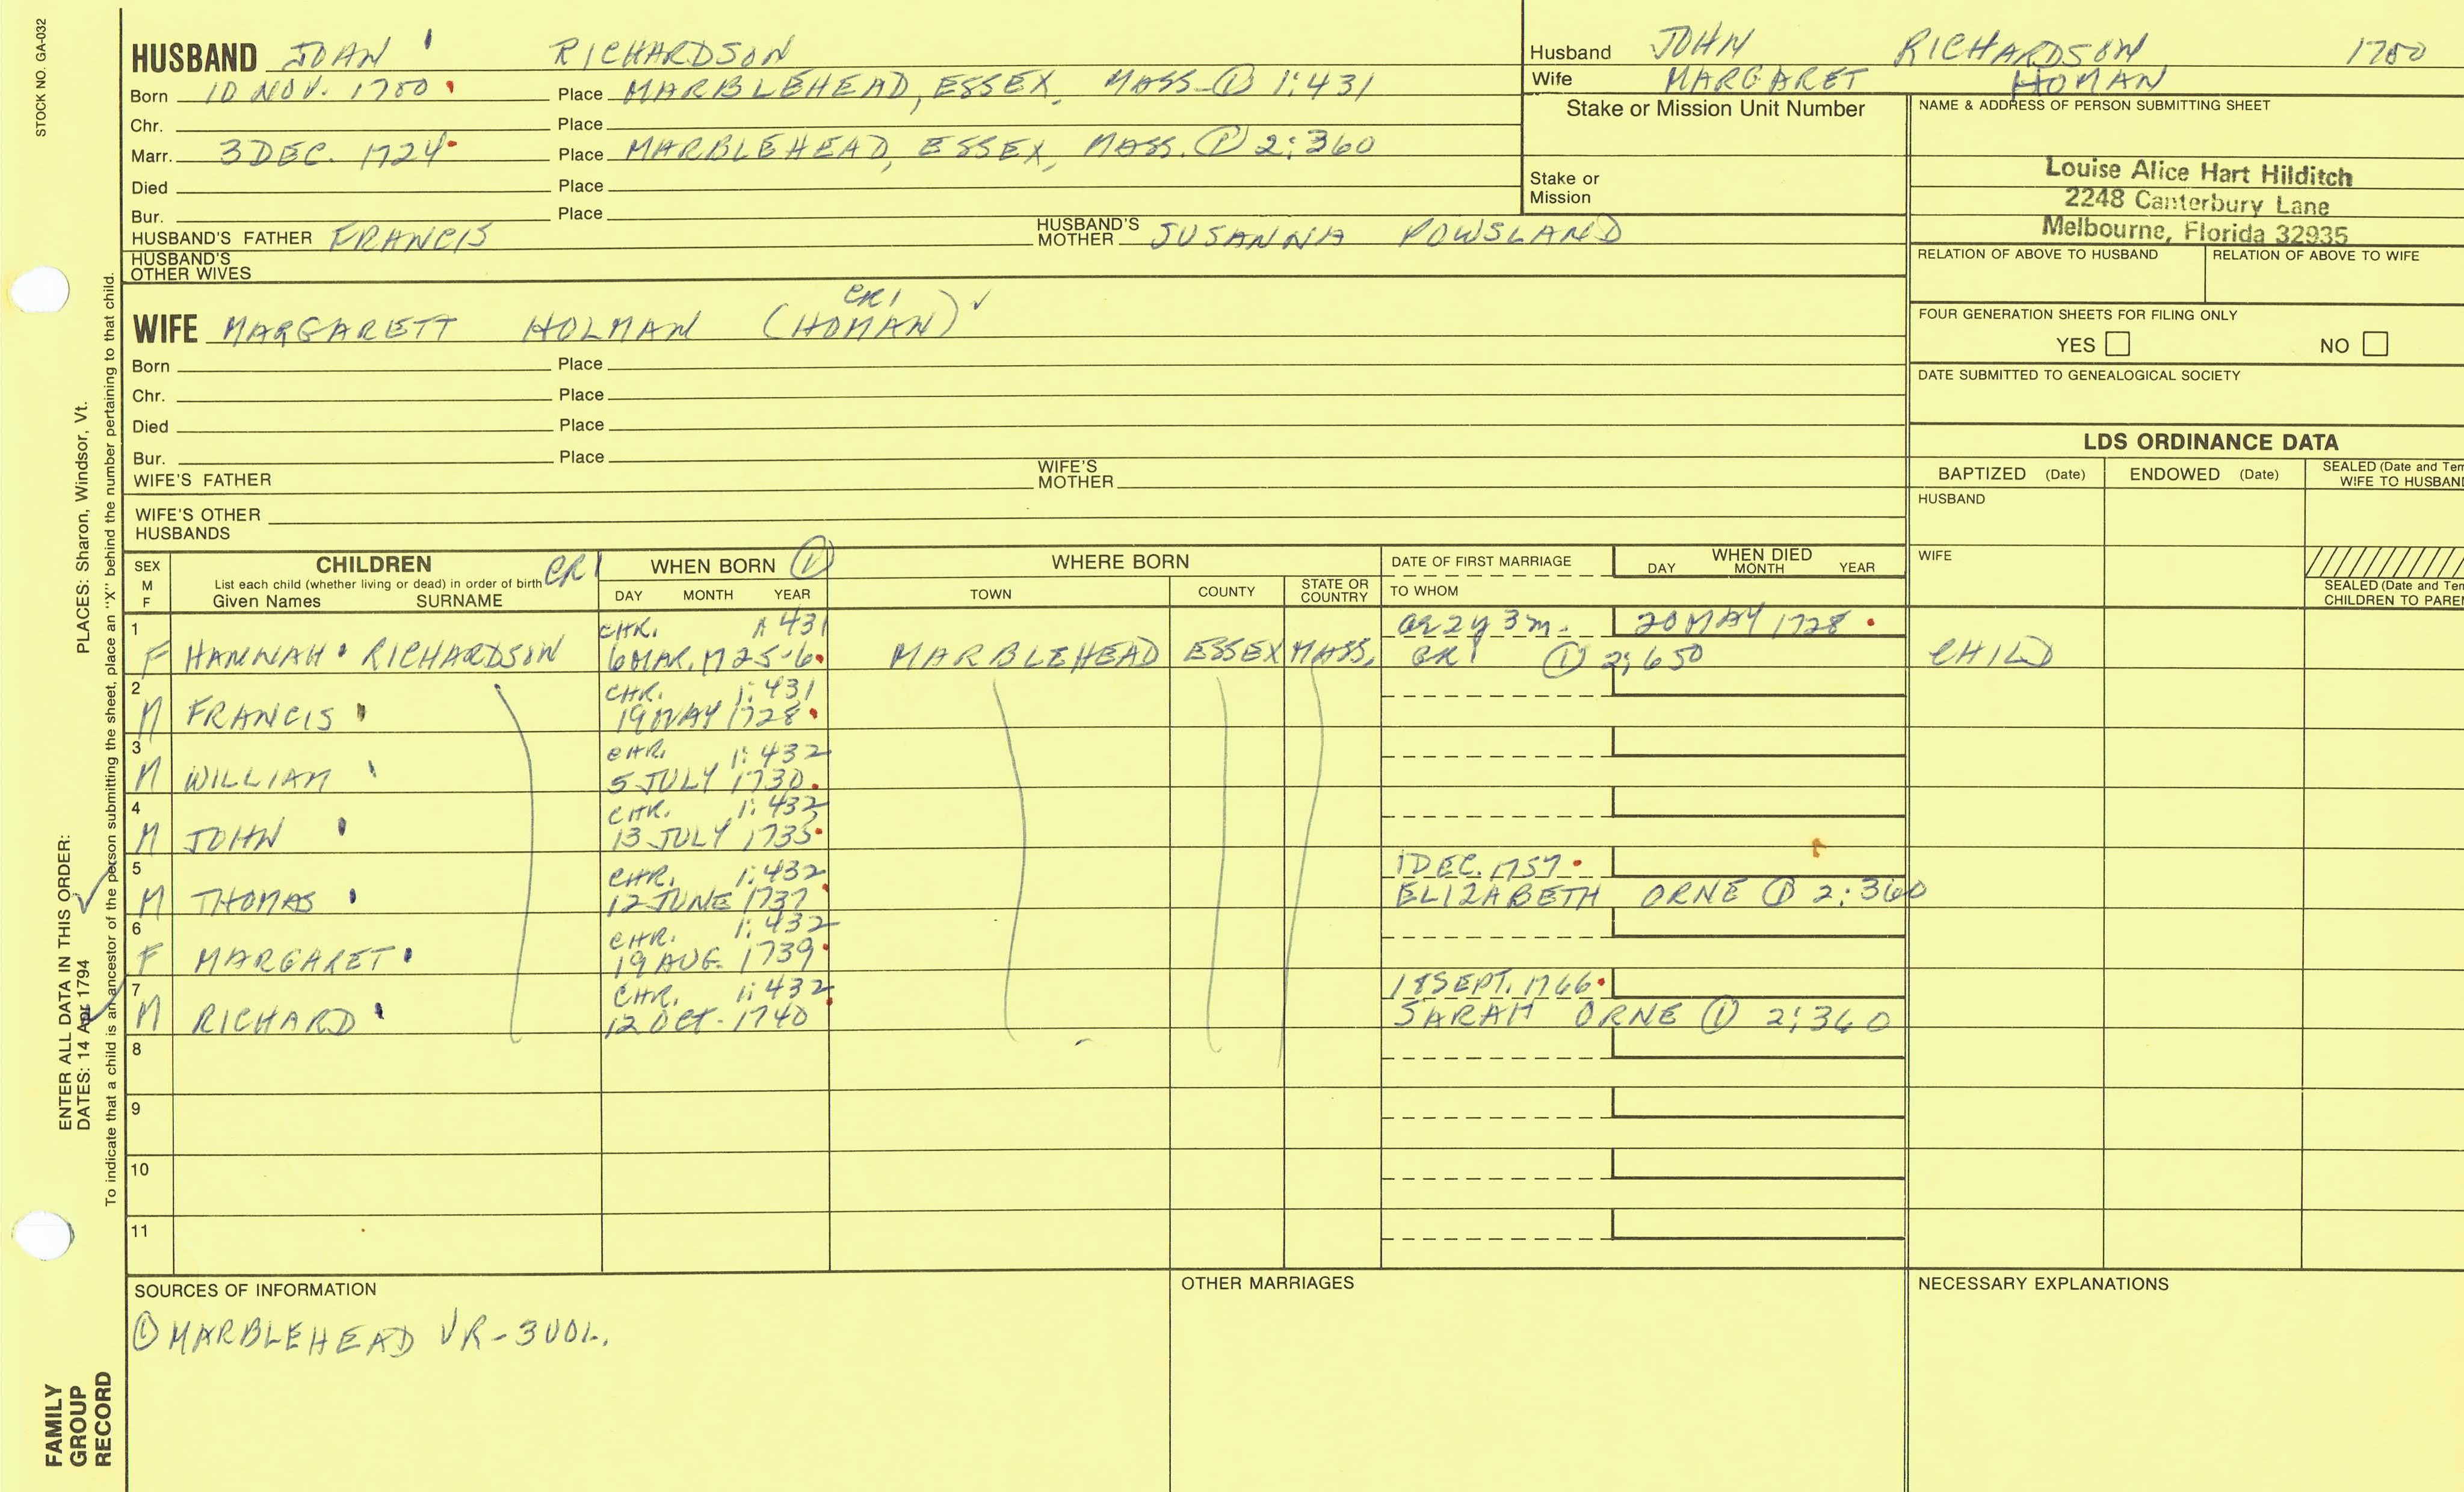 STOCK NO. GA-032
HUSBAND JOHN RICHARDSON
Born 10 NOV. 1700 Place MARBLEHEAD, ESSEX, MASS. ① 1:431
Chr. Place
Marr. 3 DEC. 1724 Place MARBLEHEAD, ESSEX, MASS. ① 2:360
Died Place
Bur. Place
HUSBAND'S FATHER FRANCIS HUSBAND'S MOTHER SUSANNA POWSLAND
HUSBAND'S OTHER WIVES
Husband JOHN RICHARDSON 1700
Wife MARGARET HOMAN
Stake or Mission Unit Number
Stake or Mission
NAME & ADDRESS OF PERSON SUBMITTING SHEET
Louise Alice Hart Hilditch
2248 Canterbury Lane
Melbourne, Florida 32935
RELATION OF ABOVE TO HUSBAND RELATION OF ABOVE TO WIFE
FOUR GENERATION SHEETS FOR FILING ONLY
YES NO
DATE SUBMITTED TO GENEALOGICAL SOCIETY
CR1
WIFE MARGARETT HOLMAN (HOMAN) ✓
Born Place
Chr. Place
Died Place
Bur. Place
WIFE'S FATHER WIFE'S MOTHER
WIFE'S OTHER HUSBANDS
LDS ORDINANCE DATA
BAPTIZED (Date) ENDOWED (Date) SEALED (Date and Tem
WIFE TO HUSBAND
HUSBAND
WIFE
SEALED (Date and Tem
CHILDREN TO PAREN
SEX M F
CHILDREN CR1
List each child (whether living or dead) in order of birth
Given Names SURNAME
WHEN BORN ①
DAY MONTH YEAR
WHERE BORN
TOWN COUNTY STATE OR COUNTRY
DATE OF FIRST MARRIAGE
TO WHOM
WHEN DIED
DAY MONTH YEAR
1 CHR. 431 a2 2y 3m. 20 MAY 1728
F HANNAH RICHARDSON 6 MAR. 1725-6 MARBLEHEAD ESSEX MASS. CR1 ① 2:650 CHILD
2 CHR. 1:431
M FRANCIS 19 MAY 1728
3 CHR. 1:432
M WILLIAM 5 JULY 1730
4 CHR. 1:432
M JOHN 13 JULY 1735
5 CHR. 1:432 1 DEC. 1757
M THOMAS 12 JUNE 1737 ELIZABETH ORNE ① 2:360
6 CHR. 1:432
F MARGARET 19 AUG. 1739
7 CHR. 1:432 18 SEPT. 1766
M RICHARD 12 OCT. 1740 SARAH ORNE ① 2:360
8
9
10
11
SOURCES OF INFORMATION
① MARBLEHEAD VR-3 VOL.
OTHER MARRIAGES
NECESSARY EXPLANATIONS
ENTER ALL DATA IN THIS ORDER:
DATES: 14 Apr 1794 PLACES: Sharon, Windsor, Vt.
To indicate that a child is an ancestor of the person submitting the sheet, place an "X" behind the number pertaining to that child.
FAMILY
GROUP
RECORD